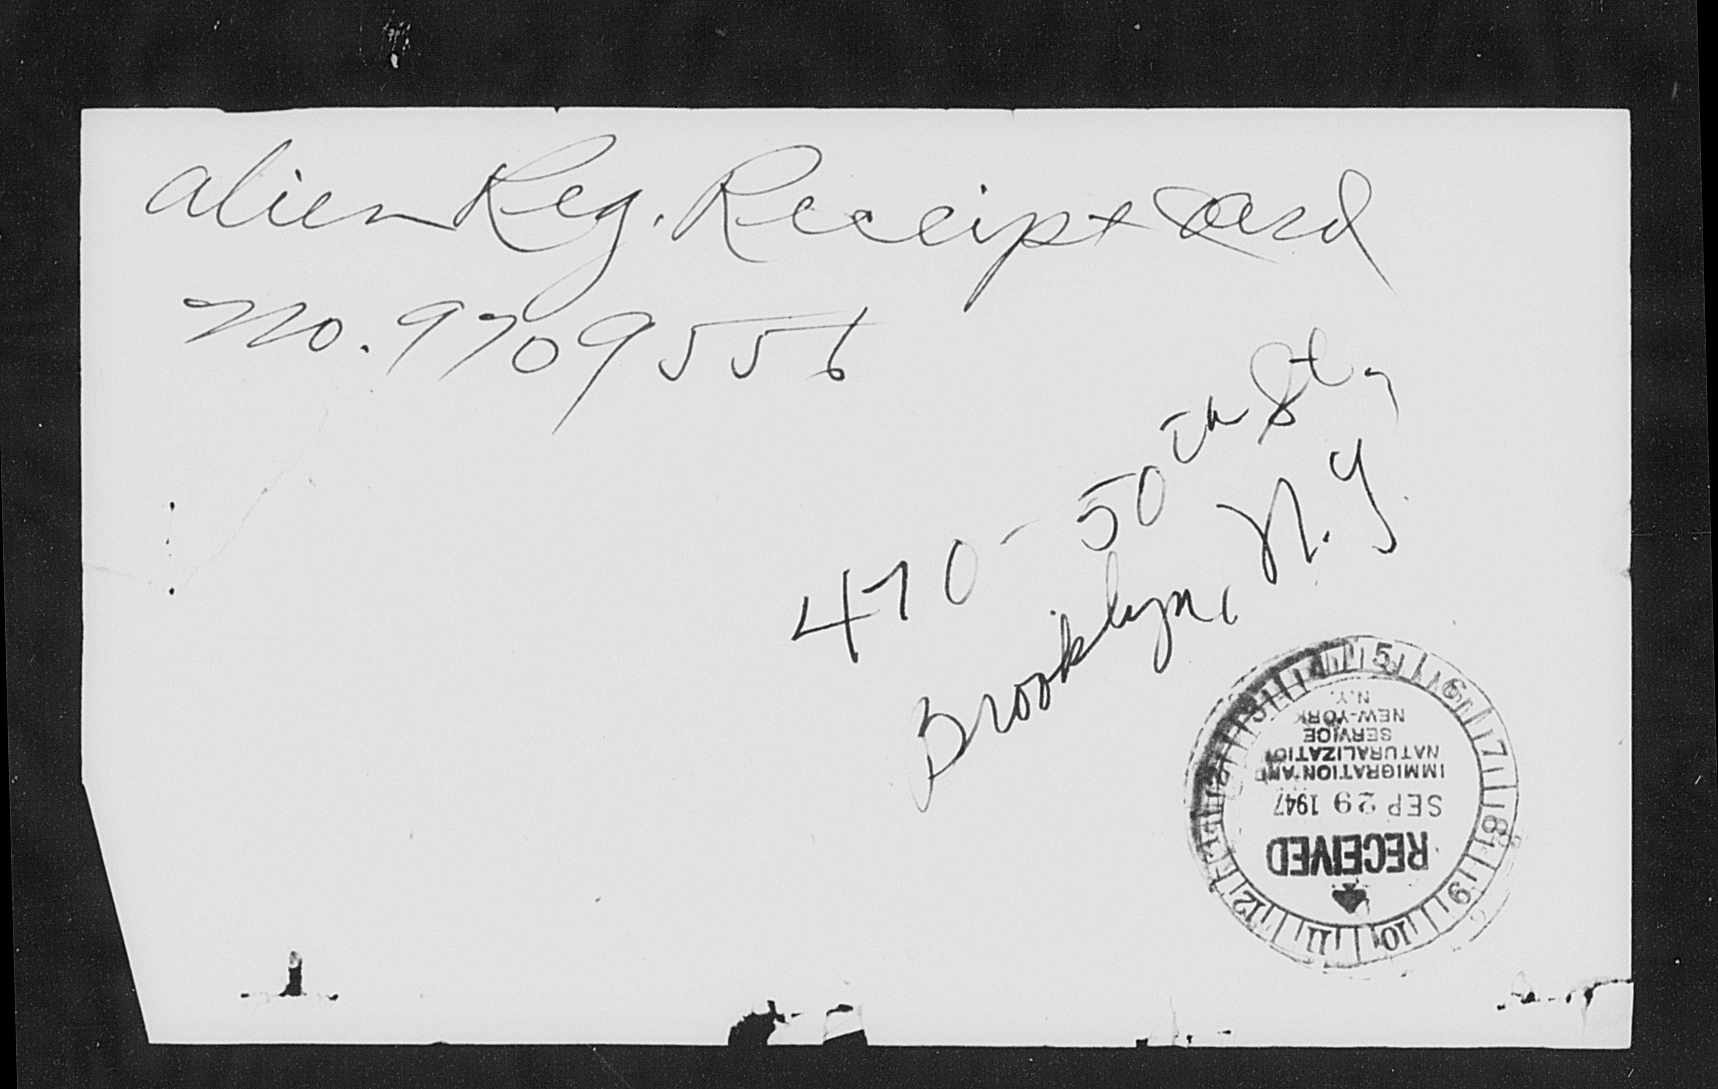 Alien Reg. Receipt Card
No. 9709556
470-50th St.,
Brooklyn, N.Y.
5
6
7
8
9
10
11
12
1
2
3
4
RECEIVED
SEP 29 1947
IMMIGRATION AND
NATURALIZATION
SERVICE
NEW-YORK
N.Y.